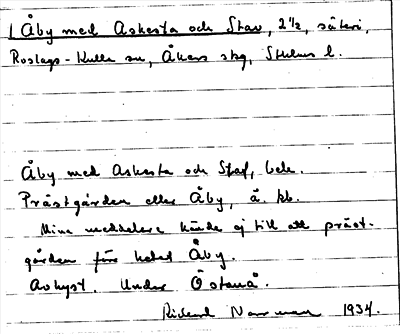 1 Åby med Askesta och Stav, 2 1/2, säteri,
Roslags-Kulla sn, Åkers skg, Sthlms l.
Åby med Askesta och Staf, bebe.
Prästgården eller Åby, ä. kb.
Mine meddelare kände ej till att präst-
gården förr hetat Åby.
Avhyst. Under Östanå.
Rickard Norrman 1934.